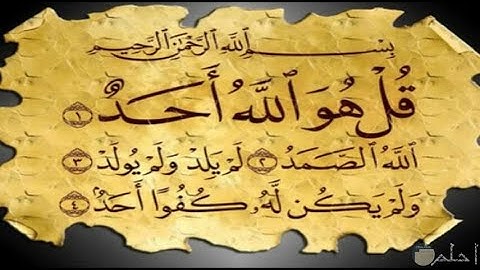 بِسْمِ ٱللَّهِ ٱلرَّحْمَٰنِ ٱلرَّحِيمِ
قُلْ هُوَ ٱللَّهُ أَحَدٌ ١
ٱللَّهُ ٱلصَّمَدُ ٢ لَمْ يَلِدْ وَلَمْ يُولَدْ ٣
وَلَمْ يَكُن لَّهُۥ كُفُوًا أَحَدٌۢ ٤
احلم